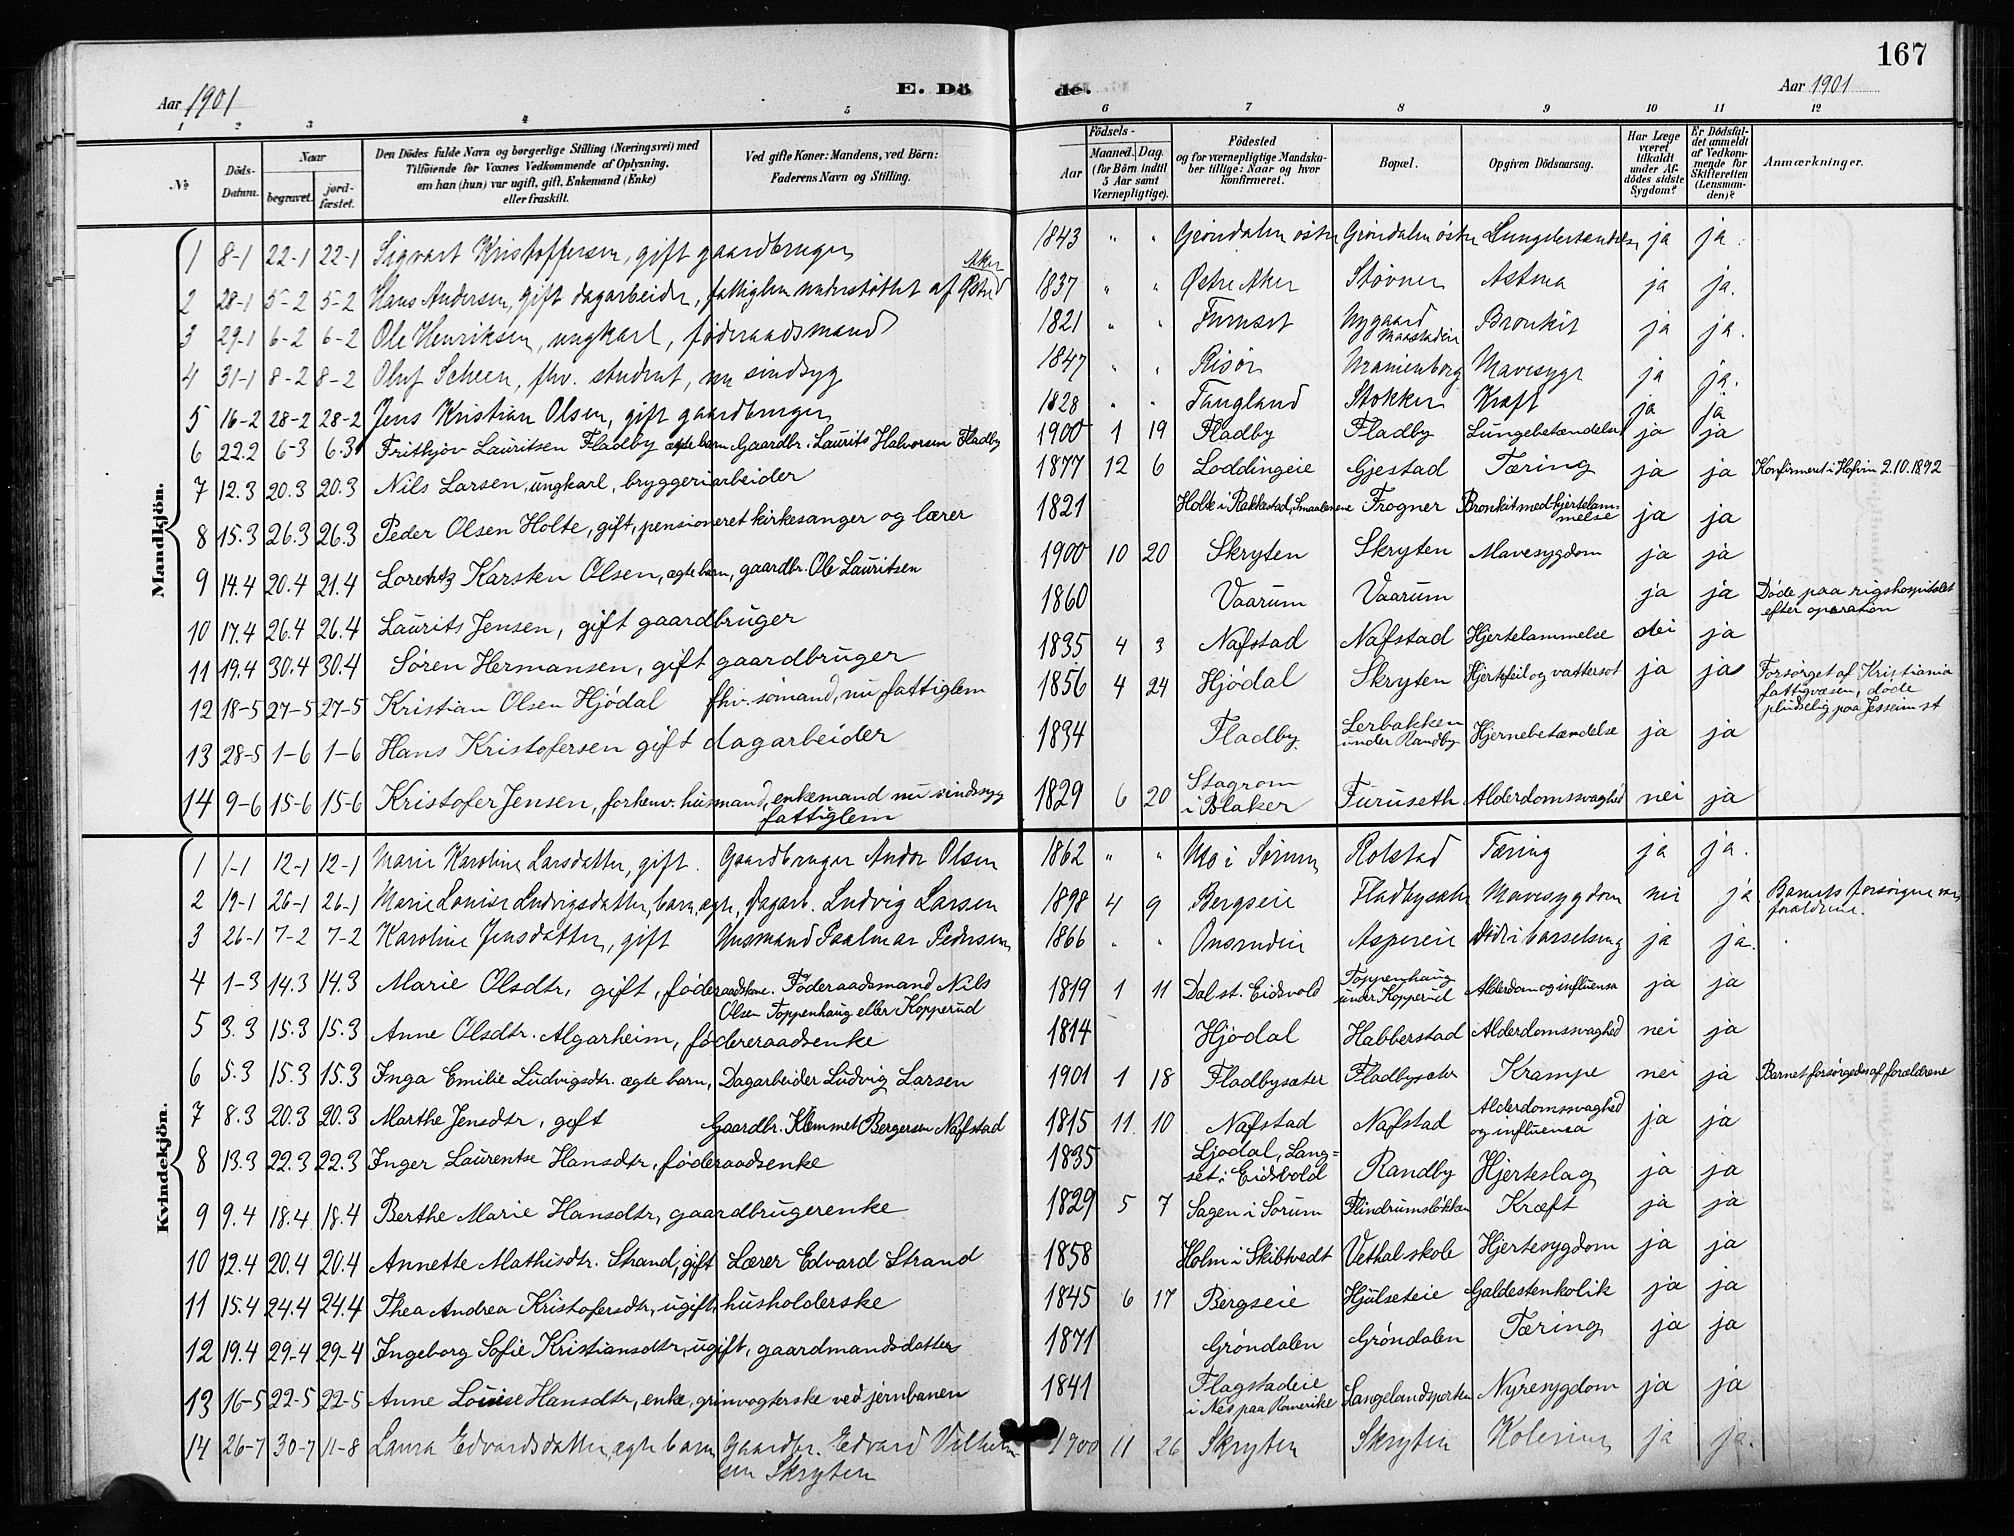 167
Aar 1901
E. Döde.
Aar 1901
1 2 3 4 5 6 7 8 9 10 11 12
№
Döds-Datum.
Naar
begravet.
jordfæstet.
Den Dödes fulde Navn og borgerlige Stilling (Næringsvei) med
Tilföiende for Voxnes Vedkommende af Oplysning,
om han (hun) var ugift, gift, Enkemand (Enke)
eller fraskilt.
Ved gifte Koner: Mandens, ved Börn:
Faderens Navn og Stilling.
Födsels-
Aar
Maaned. Dag.
(for Börn indtil
5 Aar samt
Værnepligtige).
Födested
og for værnepligtige Mandskaber
tillige: Naar og hvor
konfirmeret.
Bopæl.
Opgiven Dödsaarsag.
Har Læge
været
tilkaldt
under Afdödes
sidste
Sygdom?
Er Dödsfaldet
anmeldt
af Vedkommende
for
Skifteretten
(Lensmanden)?
Anmærkninger.
Mandkjön.
1 8-1 22-1 22-1 Sigvart Kristoffersen, gift gaardbruger 1843 " " Grøndalen østre Grøndalen østre Lungebetændelse ja ja.
2 28-1 5-2 5-2 Hans Andersen, gift dagarbeider, fattiglem understøttet af Østre Aker 1837 " " Østre Aker Støvner Astma ja ja.
3 29-1 6-2 6-2 Ole Henriksen, ungkarl, føderaadsmand 1821 " " Furuset Nygaard Bronkit ja ja.
4 31-1 8-2 8-2 Oluf Scheen, fhv. student, nu sindsyg 1847 " " Risør Uranienborg Mavesyge ja ja.
5 16-2 28-2 28-2 Jens Kristian Olsen, gift gaardbruger 1828 " " Fangland Stokker Kræft ja ja
6 22.2 6-3 6.3 Fritkjov Lauritsen Fladby ægte barn Gaardbr. Laurits Halvorsen Fladby 1900 1 19 Fladby Fladby Lungebetændelse ja ja
7 12.3 20.3 20.3 Nils Larsen, ungkarl, bryggeriarbeider 1877 12 6 Loddingeie Gjestad Tæring ja ja Konfirmeret i Hofvin 2.10.1892
8 15.3 26.3 26.3 Peder Olsen Holte, gift, pensioneret kirkesanger og lærer 1821 Holte i Rakkestad, Smaalenene Frogner Bronkit med hjertelammelse ja ja
9 14.4 20.4 21.4 Lorentz Karsten Olsen, ægte barn, gaardbr. Ole Lauritsen 1900 10 20 Skryten Skryten Mavesygdom ja ja
10 17.4 26.4 26.4 Laurits Jensen, gift gaardbruger 1860 Vaarum Vaarum ja ja Døde paa rigshospitalet
efter operation
11 19.4 30.4 30.4 Søren Hermansen, gift gaardbruger 1835 4 3 Nafstad Nafstad Hjertelammelse nei ja
12 18-5 27-5 27-5 Kristian Olsen Hjødal fhv. sømand, nu fattiglem 1856 4 24 Hjødal Skryten Hjertefeil og vattersot ja ja Forsørget af Kristiania
fattigvæsen, døde
pludselig paa Jessheim st
13 28-5 1-6 1-6 Hans Kristofersen gift dagarbeider 1834 Fladby. Lerbakken
under Randby Hjernebetændelse ja ja
14 9-6 15-6 15-6 Kristofer Jensen, forhenv. husmand, enkemand nu sindssyg
fattiglem 1829 6 20 Stagrom
i Blaker Furuseth Alderdomssvaghed nei ja
Kvindekjön.
1 1-1 12-1 12-1 Marie Karoline Larsdatter, gift. Gaardbruger Andor Olsen 1862 " " Mo i Sørum Rolstad Tæring ja ja.
2 19-1 26-1 26-1 Marie Louise Ludvigsdatter, barn, ægte, Dagarb. Ludvig Larsen 1898 4 9 Bergseie Fladbysæter Mavesygdom nei ja Barnets forsørgere var
forældrene.
3 26-1 7-2 7-2 Karoline Jensdatter, gift Husmand Paalmar Pedersen 1866 " " Onsrudeie Aspereie Døde i barselseng ja ja.
4 1-3 14.3 14.3 Marie Olsdtr, gift, føderaadskone. Føderaadsmand Nils
Olsen Toppenhaug eller Kopperud 1819 1 11 Dal st. Eidsvold Toppenhaug
under Kopperud Alderdom og influensa ja ja
5 3.3 15.3 15.3 Anne Olsdtr. Algarheim, fødereraadsenke 1814 Hjødal Habberstad Alderdomssvaghed nei ja
6 5.3 15.3 15.3 Inga Emilie Ludvigsdtr. ægte barn, Dagarbeider Ludvig Larsen 1901 1 18 Fladbysæter Fladbysæter Krampe nei ja Barnet forsørgedes af forældrene
7 8.3 20.3 20.3 Marthe Jensdtr, gift Gaardbr. Klemmet Bergersen Nafstad 1815 11 10 Nafstad Nafstad Alderdomssvaghed
og influensa ja ja
8 13.3 22.3 22.3 Inger Laurentse Hansdtr, føderaadsenke 1835 Ljødal, Lang-
set i Eidsvold Randby Hjerteslag ja ja
9 9.4 18.4 18.4 Berthe Marie Hansdtr, gaardbrugerenke 1829 5 7 Sagen i Sørum Flindrumsløkken Kræft ja ja
10 12.4 20.4 20.4 Annette Mathisdtr. Strand, gift Lærer Edvard Strand 1858 Holm i Skibtvedt Vethal skole Hjertesygdom ja ja
11 15.4 24.4 24.4 Thea Andrea Kristofersdtr, ugift, husholderske 1845 6 17 Bergseie Hjulseteie Galdestenkolik ja ja
12 19.4 29-4 29-4 Ingeborg Sofie Kristiansdtr, ugift, gaardmandsdatter 1871 Grøndalen Grøndalen Tæring ja ja
13 16-5 22-5 22-5 Anne Louise Hansdtr, enke, grinvogterske ved jernbanen 1841 Flagstadeie
i Nes paa Romerike Langelandsporten Nyresygdom ja ja
14 26-7 30-7 11-8 Laura Edvardsdatter, ægte barn Gaardbr. Edvard Vilhelm-
sen Skryten 1900 11 26 Skryten Skryten Kolerine ja ja.